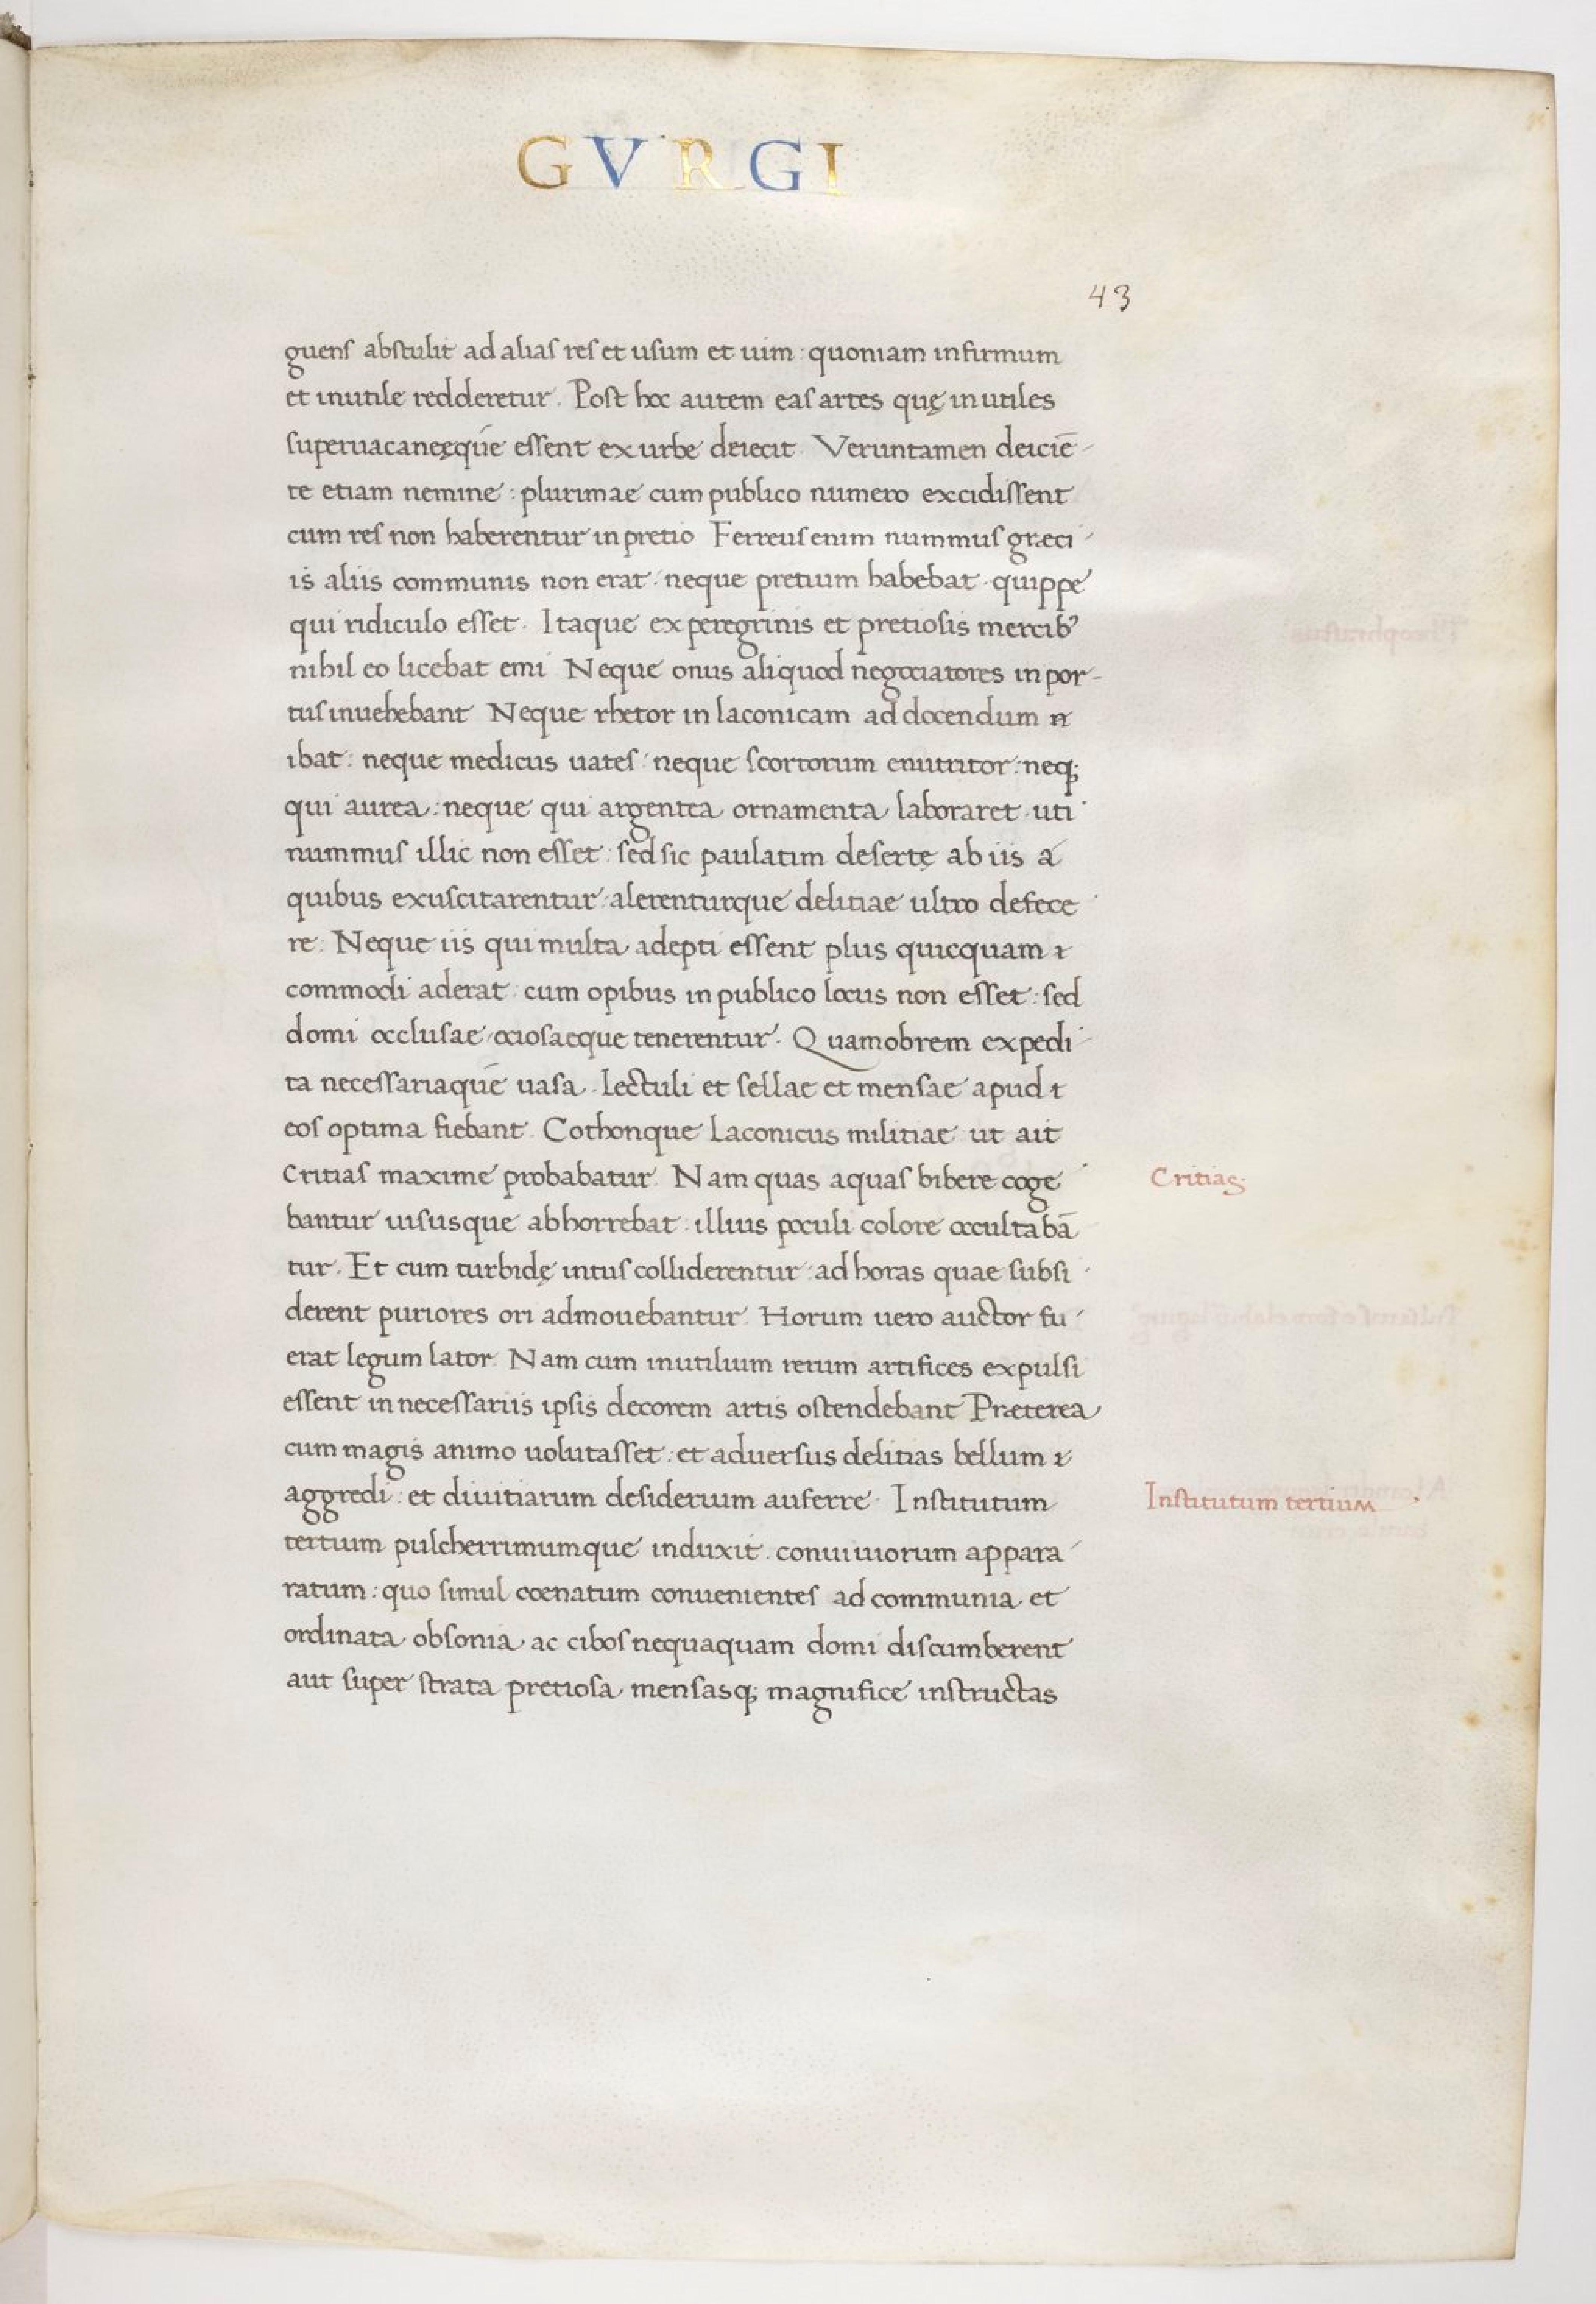 GVRGI
43
guens abstulit ad alias res et usum et uim : quoniam infirmum
et inutile redderetur . Post hoc autem eas artes quę inutiles
superuacaneęque essent ex urbe deiecit . Veruntamen deiciē-
te etiam nemine : plurimae cum publico numero excidissent
cum res non haberentur in pretio Ferreus enim nummus græci-
is aliis communis non erat : neque pretium habebat . quippe
qui ridiculo esset . Itaque ex peregrinis et pretiosis mercib'
nihil eo licebat emi Neque onus aliquod negociatores in por-
tus inuehebant Neque rhetor in laconicam ad docendum
ibat : neque medicus uates : neque scortorum enutritor : neq;
qui aurea : neque qui argentea ornamenta laboraret . uti
nummus illic non esset : sed sic paulatim desertę ab iis a
quibus exuscitarentur : alerenturque delitiae ultro defece-
re : Neque iis qui multa adepti essent plus quicquam
commodi aderat : cum opibus in publico locus non esset : sed
domi occlusae ociosaeque tenerentur . Quamobrem expedi-
ta necessariaque uasa . Lectuli et sellae et mensae apud
eos optima fiebant . Cothonque Laconicus militiae ut ait
Critias maxime probabatur . Nam quas aquas bibere coge-
bantur uisusque abhorrebat : illius poculi colore occultabā
tur . Et cum turbidę intus colliderentur : ad horas quae subsi-
derent puriores ori admouebantur . Horum uero auctor fu-
erat legum lator . Nam cum inutilium rerum artifices expulsi
essent in necessariis ipsis decorem artis ostendebant Præterea
cum magis animo uolutasset : et aduersus delitias bellum
aggredi : et diuitiarum desiderium auferre . Institutum
tertium pulcherrimumque induxit . conuiuiorum appara-
ratum : quo simul coenatum conuenientes ad communia et
ordinata obsonia ac cibos nequaquam domi discumberent
aut super strata pretiosa mensasq; magnifice instructas
Critias.
Institutum tertium